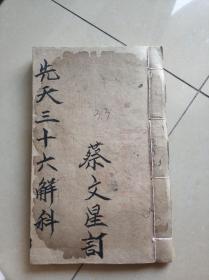 先天三十六解科
33
蔡文星訂